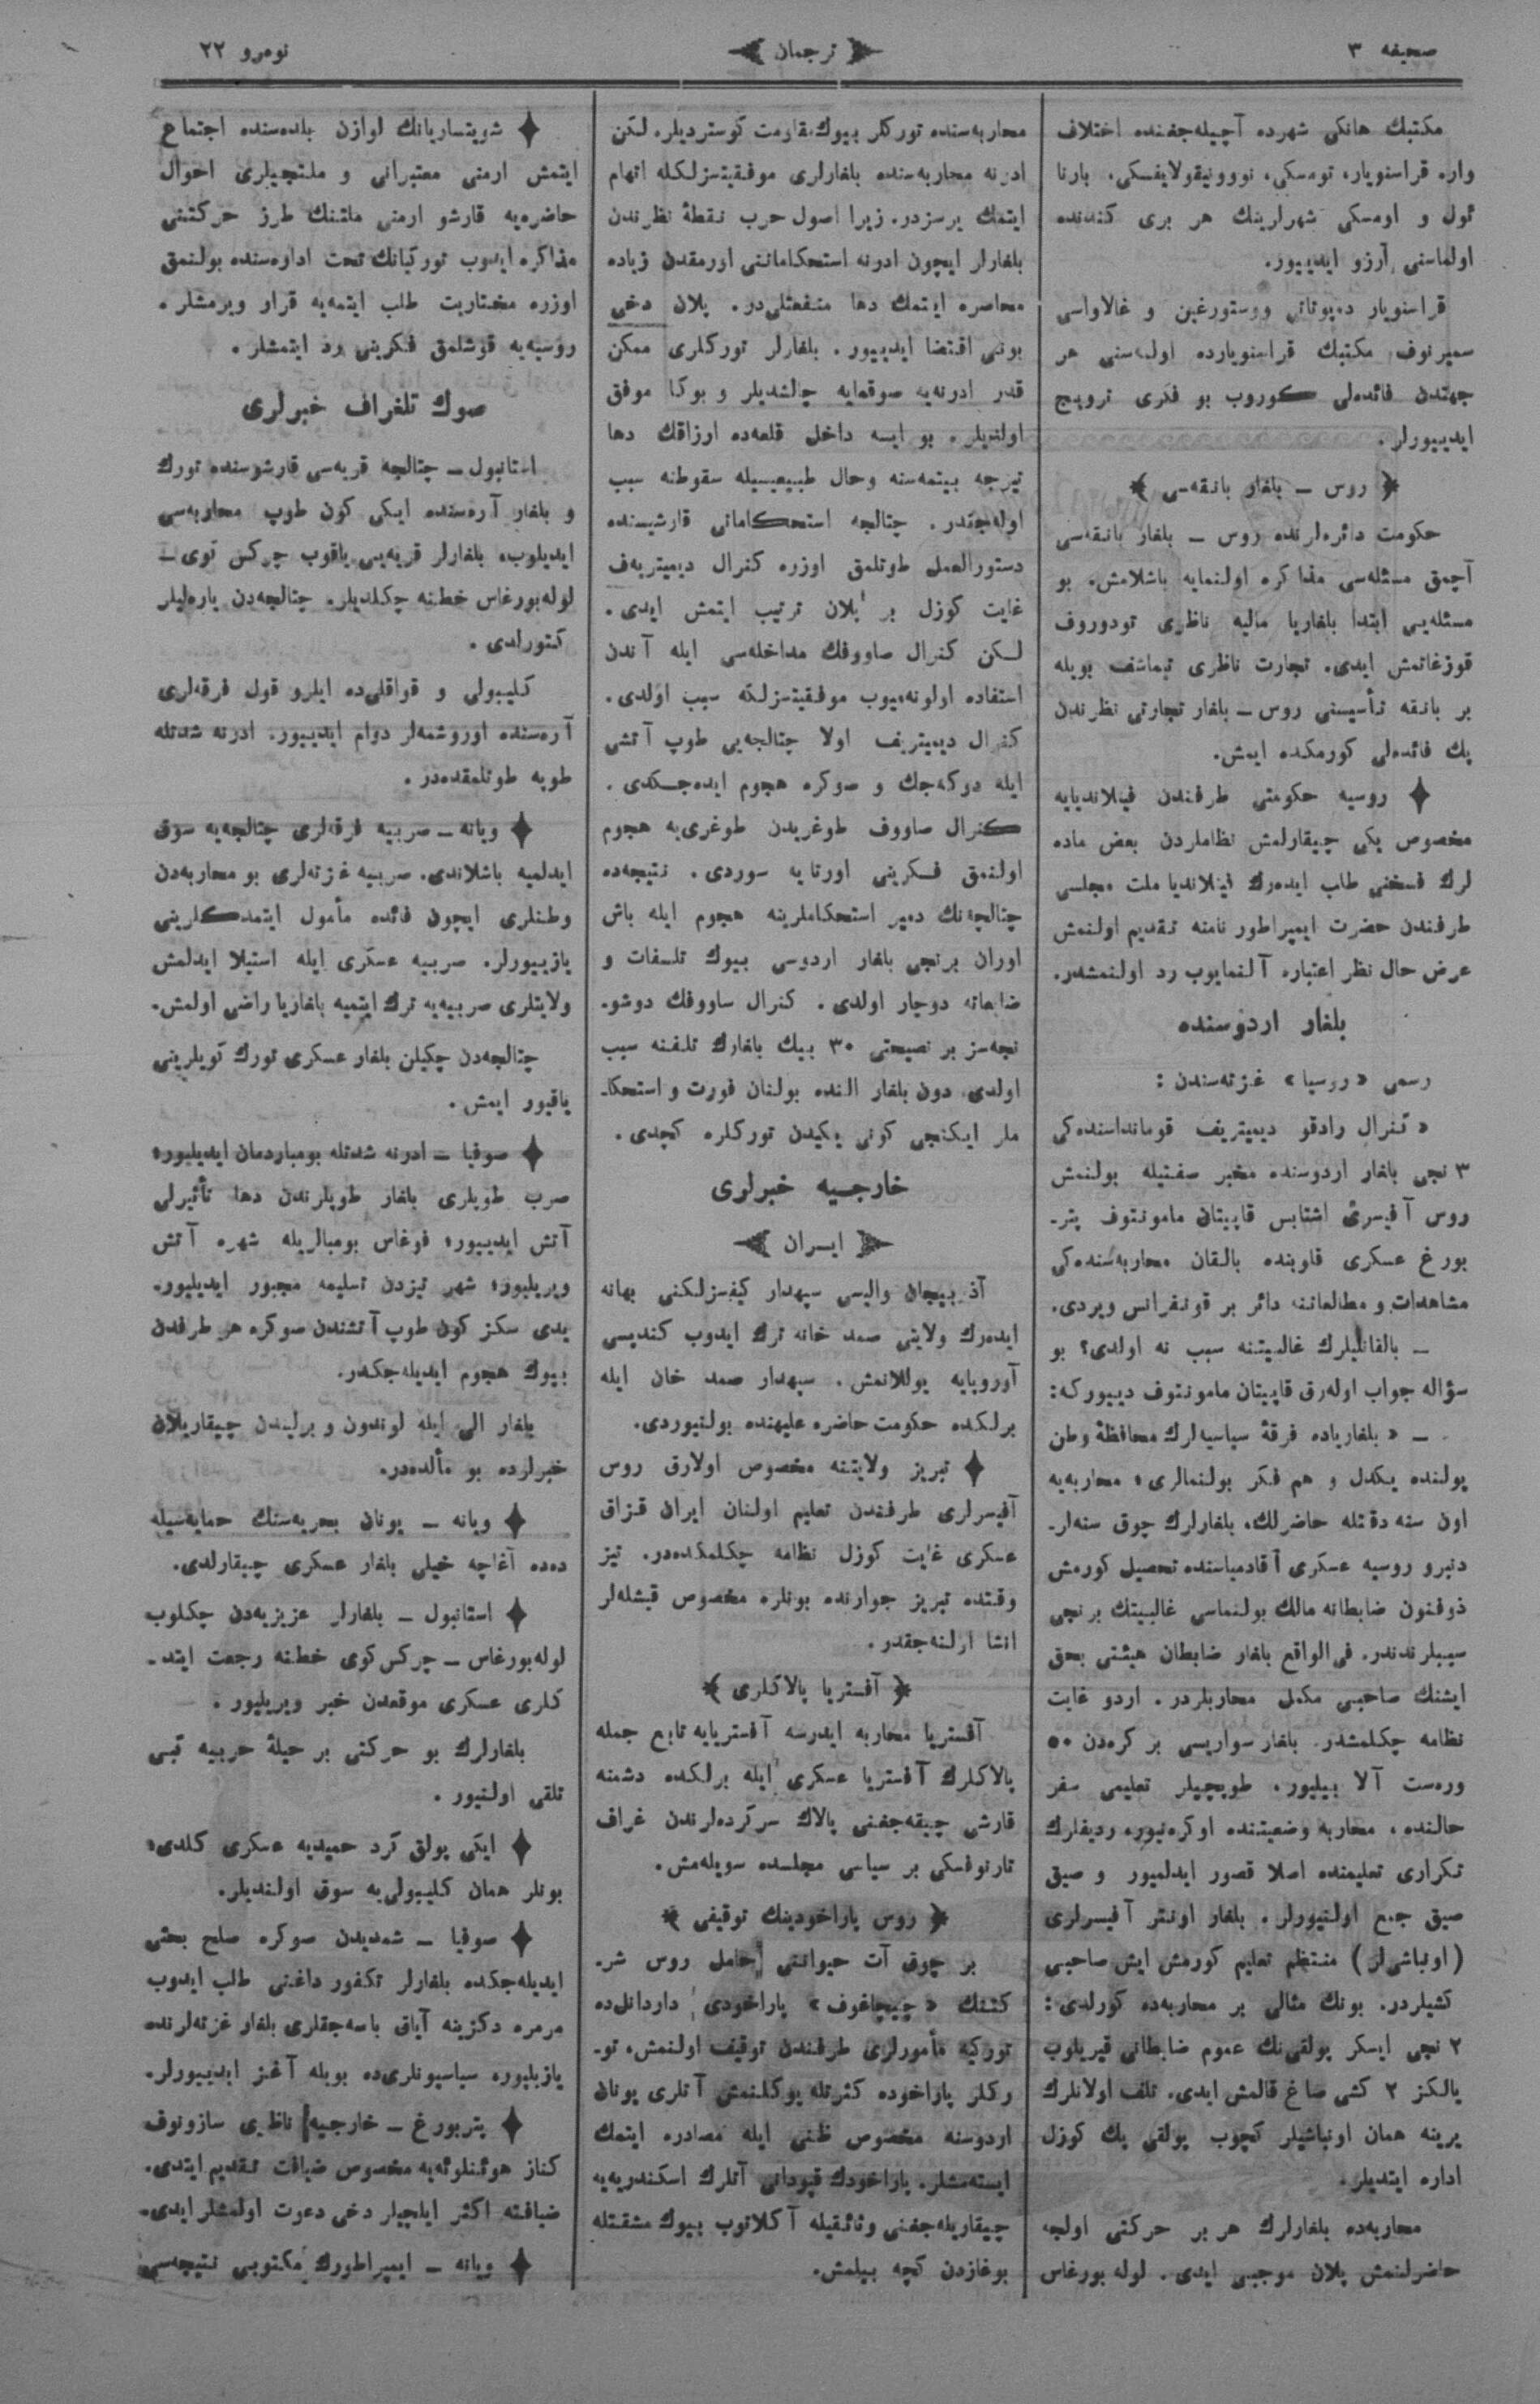 صحیفه ۳
ترجمان
نومرو ۲۲
مکتبك هانکی شهرده آچیله‌جغنده اختلاف
وار. قراسنویار، تومسکی، نوونیقولایفسکی، بارنا
ئول و اومسکی شهرلرینك هر بری کندنده
اولماسنی آرزو ایدییور.
قراسنویار ده‌پوتاتی ووستورغین و غالاواسی
سمیرنوف مکتبك قراسنویارده اولمه‌سنی هر
جهتدن فائده‌لی کوروب بو فکری ترویج
ایدییورلر.
﴿ روس – بلغار بانقه‌سی ﴾
حکومت دائره‌لرنده روس – بلغار بانقه‌سی
آچمق مسئله‌سی مذاکره اولنمایه باشلامش. بو
مسئله‌یی ابتدا بلغاریا مالیه ناظری تودوروف
قوزغاتمش ایدی. تجارت ناظری تیماشف بویله
بر بانقه تأسیسنی روس – بلغار تجارتی نظرندن
پك فائده‌لی کورمکده ایمش.
✦ روسیه حکومتی طرفندن فینلاندیایه
مخصوص یکی چیقارلمش نظاملردن بعض ماده
لرك فسخنی طلب ایده‌رك فینلاندیا ملت مجلسی
طرفندن حضرت ایمپراطور نامنه تقدیم اولنمش
عرض حال نظر اعتباره آلنمایوب رد اولنمشدر.
بلغار اردوسنده
رسمی «روسیا» غزته‌سندن :
« کنرال رادقو دیمیتریف قومانداسنده‌کی
۳ نجی بلغار اردوسنده مخبر صفتیله بولنمش
روس آفیسری اشتابس قاپیتان مامونتوف پتر-
بورغ عسکری قلوبنده بالقان محاربه‌سنده‌کی
مشاهدات و مطالعاتنه دائر بر قونفرانس ویردی.
– بالقانلیلرك غالبیتنه سبب نه اولدی؟ بو
سؤاله جواب اوله‌رق قاپیتان مامونتوف دییورکه:
– « بلغاریاده فرقۀ سیاسیه‌لرك محافظۀ وطن
یولنده یکدل و هم فکر بولنمالری، محاربه‌یه
اون سنه دقتله حاضرلك، بلغارلرك چوق سنه‌لر-
دنبرو روسیه عسکری آقادمیاسنده تحصیل کورمش
ذوفنون ضابطانه مالك بولنماسی غالبیتك برنجی
سببلرندندر. فی الواقع بلغار ضابطان هیئتی بحق
ایشنك صاحبی مکمل محاربلردر. اردو غایت
نظامه چکلمشدر. بلغار سواریسی بر کره‌دن ۵۰
ورست آلا بیلیور. طوپچیلر تعلیمی سفر
حالنده، محاربه وضعیتنده اوکره‌نیور. ردیفلرك
تکراری تعلیمنده اصلا قصور ایدلمیور و صیق
صیق جمع اولنیورلر. بلغار اونتر آفیسرلری
(اونباشی‌لر) منتظم تعلیم کورمش ایش صاحبی
کشیلردر. بونك مثالی بر محاربه‌ده کورلدی:
۲ نجی ایسکر پولقی‌نك عموم ضابطانی قیریلوب
یالکز ۲ کشی صاغ قالمش ایدی. تلف اولانلرك
یرینه همان اونباشیلر کچوب پولقی پك کوزل
اداره ایتدیلر.
محاربه‌ده بلغارلرك هر بر حرکتی اولجه
حاضرلنمش پلان موجبی ایدی. لوله بورغاس
محاربه‌سنده تورکلر بیوك مقاومت کوستردیلر. لکن
ادرنه محاربه‌سنده بلغارلری موفقیتسزلکله اتهام
ایتمك یرسزدر. زیرا اصول حرب نقطۀ نظرندن
بلغارلر ایچون ادرنه استحکاماتنی اورمقدن زیاده
محاصره ایتمك دها منفعتلی‌در. پلان دخی
بونی اقتضا ایدییور. بلغارلر تورکلری ممکن
قدر ادرنه‌یه صوقمایه چالشدیلر و بوکا موفق
اولدیلر. بو ایسه داخل قلعه‌ده ارزاقك دها
تیزجه بیتمه‌سنه وحال طبیعیسیله سقوطنه سبب
اوله‌جقدر. چتالجه استحکاماتی قارشیسنده
دستورالعمل طوتلمق اوزره کنرال دیمیتریه‌ف
غایت کوزل بر پلان ترتیب ایتمش ایدی.
لکن کنرال صاووفك مداخله‌سی ایله آندن
استفاده اولونه‌میوب موفقیتسزلکه سبب اولدی.
کنرال دیمیتریف اولا چتالجه‌یی طوپ آتشی
ایله دوکه‌جك و صوکره هجوم ایده‌جکدی.
کنرال صاووف طوغریدن طوغری‌یه هجوم
اولنمق فکرینی اورتایه سوردی. نتیجه‌ده
چتالجه‌نك دمیر استحکاملرینه هجوم ایله باش
اوران برنجی بلغار اردوسی بیوك تلفات و
ضایعاته دوچار اولدی. کنرال ساووفك دوشو-
نجه‌سز بر نصیحتی ۳۰ بیك بلغارك تلفنه سبب
اولدی. دون بلغار النده بولنان فورت و استحکا-
ملر ایکنجی کونی یکیدن تورکلره کچدی.
خارجیه خبرلری
ایران
آذربیجان والیسی سپهدار کیفسزلکنی بهانه
ایده‌رك ولایتی صمد خانه ترك ایدوب کندیسی
آوروپایه یوللانمش. سپهدار صمد خان ایله
برلکده حکومت حاضره علیهنده بولنیوردی.
✦ تبریز ولایتنه مخصوص اولارق روس
آفیسرلری طرفندن تعلیم اولنان ایران قزاق
عسکری غایت کوزل نظامه چکلمکده‌در. تیز
وقتده تبریز جوارنده بونلره مخصوص قیشله‌لر
انشا اولنه‌جقدر.
﴿ آفستریا پالاکلری ﴾
آفستریا محاربه ایدرسه آفستریایه تابع جمله
پالاکلرك آفستریا عسکری ایله برلکده دشمنه
قارشی چیقه‌جغنی پالاك سرکرده‌لرندن غراف
تارنوفسکی بر سیاسی مجلسده سویله‌مش.
﴿ روس پاراخودینك توقیفی ﴾
بر چوق آت حیواننی حامل روس شر-
کتنك « چیچاغوف » پاراخودی داردانل‌ده
تورکیه مأمورلری طرفندن توقیف اولنمش. تو-
رکلر پاراخوده کثرتله یوکلنمش آتلری یونان
اردوسنه مخصوص ظنی ایله مصادره ایتمك
ایسته‌مشلر. پاراخودك قپودانی آتلرك اسکندریه‌یه
چیقاریله‌جغنی وثائقیله آکلاتوب بیوك مشقتله
بوغازدن کچه بیلمش.
✦ شویتساریانك لوازن بلده‌سنده اجتماع
ایتمش ارمنی معتبرانی و ملتجیلری احوال
حاضره‌یه قارشو ارمنی ملتنك طرز حرکتنی
مذاکره ایدوب تورکیانك تحت اداره‌سنده بولنمق
اوزره مختاریت طلب ایتمه‌یه قرار ویرمشلر.
روسیه‌یه قوشلمق فکرینی رد ایتمشلر.
صوك تلغراف خبرلری
استانبول – چتالجه قریه‌سی قارشوسنده تورك
و بلغار آره‌سنده ایکی کون طوپ محاربه‌سی
ایدیلوب، بلغارلر قریه‌یی یاقوب چرکس کوی –
لوله‌بورغاس خطنه چکلدیلر. چتالجه‌دن یاره‌لیلر
کتورلدی.
کلیبولی و قواقلی‌ده ایلرو قول فرقه‌لری
آره‌سنده اوروشمه‌لر دوام ایدییور. ادرنه شدتله
طوپه طوتلمقده‌در.
✦ ویانه – صربیه فرقه‌لری چتالجه‌یه سوق
ایدلمیه باشلاندی. صربیه غزته‌لری بو محاربه‌دن
وطنلری ایچون فائده مأمول ایتمدکلرینی
یازییورلر. صربیه عسکری ایله استیلا ایدلمش
ولایتلری صربیه‌یه ترك ایتمیه بلغاریا راضی اولمش.
چتالجه‌دن چکیلن بلغار عسکری تورك کویلرینی
یاقیور ایمش.
✦ صوفیا – ادرنه شدتله بومباردمان ایدیلیور؛
صرب طوپلری بلغار طوپلرندن دها تأثیرلی
آتش ایدییور؛ فوغاس بومبالریله شهره آتش
ویریلیور؛ شهر تیزدن تسلیمه مجبور ایدیلیور.
یدی سکز کون طوپ آتشندن صوکره هر طرفدن
بیوك هجوم ایدیله‌جکدر.
بلغار الی ایله لوندون و برلیندن چیقاریلان
خبرلرده بو مألده‌در.
✦ ویانه – یونان بحریه‌سنك حمایه‌سیله
دده آغاچه خیلی بلغار عسکری چیقارلدی.
✦ استانبول – بلغارلر عزیزیه‌دن چکلوب
لوله‌بورغاس – چرکس‌کوی خطنه رجعت ایتد-
کلری عسکری موقعدن خبر ویریلیور.
بلغارلرك بو حرکتی بر حیلۀ حربیه کبی
تلقی اولنیور.
✦ ایکی پولق کرد حمیدیه عسکری کلدی؛
بونلر همان کلیبولی‌یه سوق اولندیلر.
✦ صوفیا – شمدیدن صوکره صلح بحثی
ایدیله‌جکده بلغارلر تکفور داغنی طلب ایدوب
مرمره دکزینه آیاق باسه‌جقلری بلغار غزته‌لرنده
یازیلیور. سیاسیونلری‌ده بویله آغز ایدییورلر.
✦ پتربورغ – خارجیه ناظری سازونوف
کناز هوئنلوئه‌یه مخصوص ضیافت تقدیم ایتدی.
ضیافته اکثر ایلچیلر دخی دعوت اولمشلر ایدی.
✦ ویانه – ایمپراطورك مکتوبی نتیجه‌سی